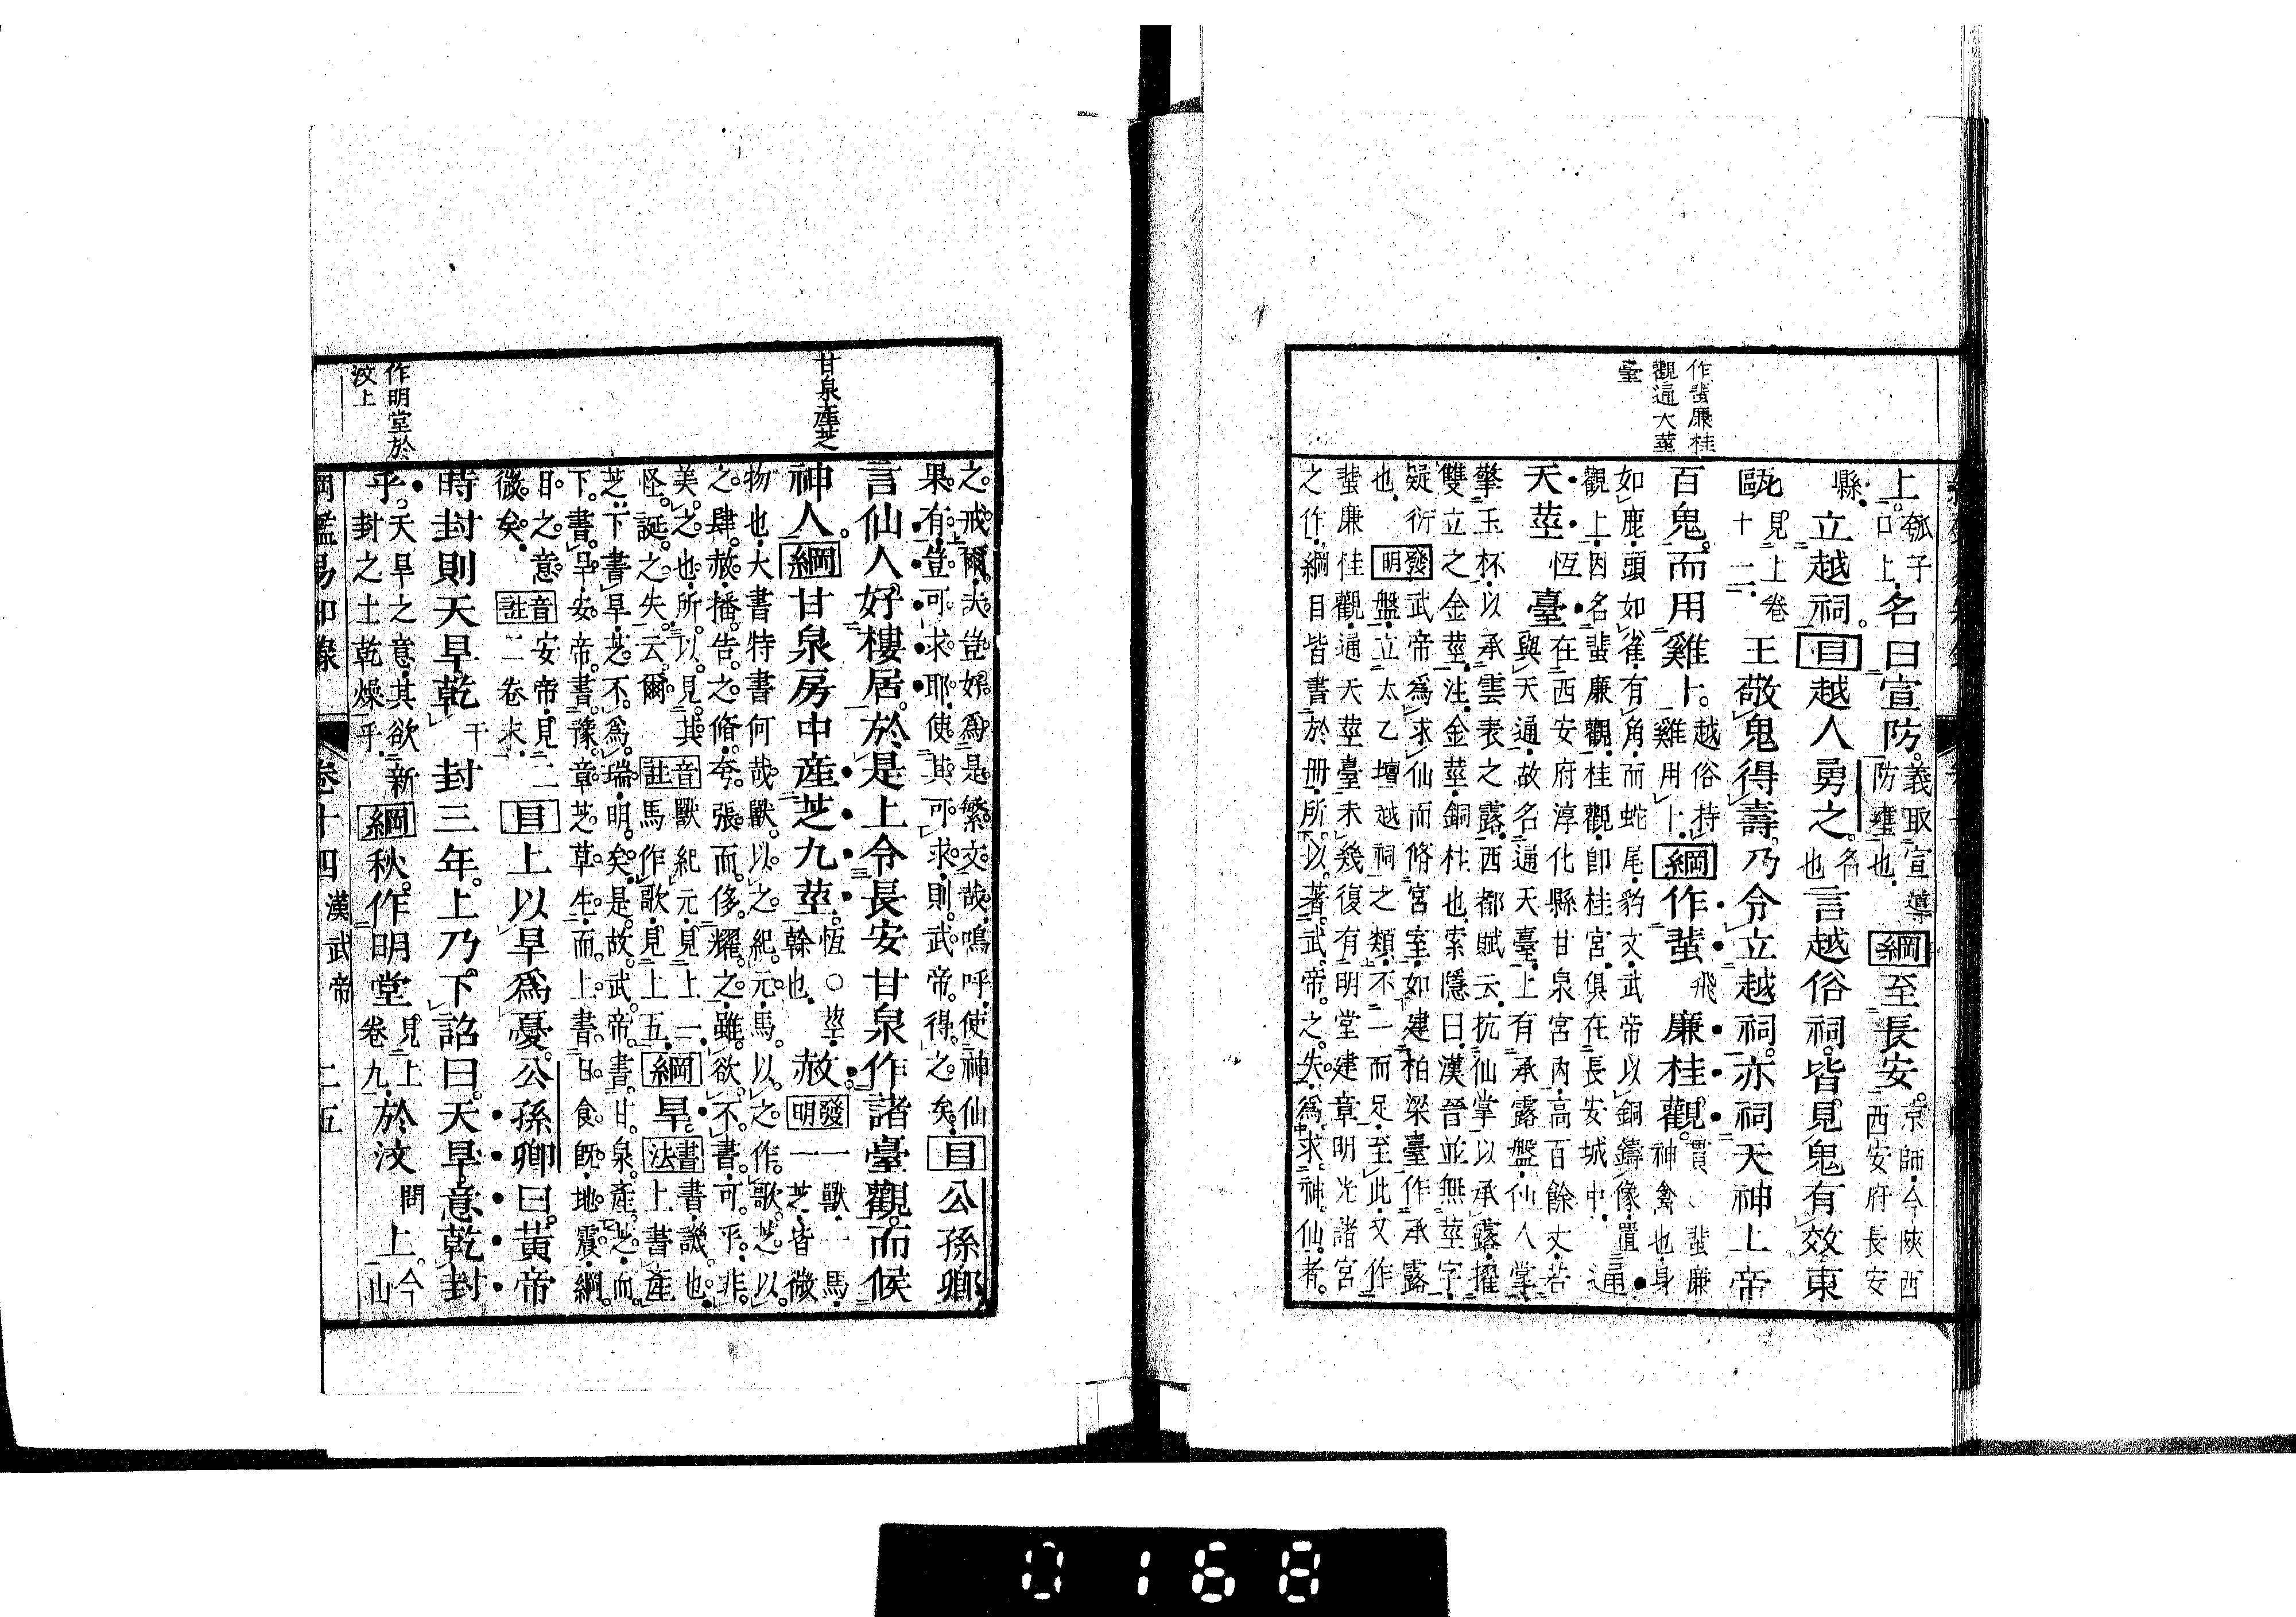 作蜚廉桂
觀通天莖
臺
上瓠子口上名曰宣防義取宣導防壅也綱至長安京師今陝西西安府長安
縣立越祠目越人勇之名也言越俗祠皆見鬼有效東
甌見上卷十二王敬鬼得壽乃令立越祠亦祠天神上帝
百鬼而用雞卜越俗持雞用卜綱作蜚飛廉桂觀貫蜚廉神禽也身
如鹿頭如雀有角而蛇尾豹文武帝以銅鑄像置
觀上因名蜚廉觀桂觀卽桂宮俱在長安城中通
天莖恆臺在西安府淳化縣甘泉宮內高百餘丈若
與天通故名通天臺上有承露盤仙人掌
擎玉杯以承雲表之露西都賦云抗仙掌以承露擢
雙立之金莖注金莖銅柱也索隱曰漢晉並無莖字
疑衍發明武帝爲求仙而脩宮室如建柏梁臺作承露
也盤立太乙壇越祠之類不一而足至此又作
蜚廉桂觀通天莖臺未幾復有明堂建章明光諸宮
之作綱目皆書於冊所以著武帝之失爲求神仙者
甘泉產芝
作明堂於
汶上
之戒爾夫豈好爲是繁文哉嗚呼使神仙
果有豈可求耶使其可求則武帝得之矣目公孫卿
言仙人好樓居於是上令長安甘泉作諸臺觀而候
神人綱甘泉房中產芝九莖恆○莖幹也赦發明一獸一馬一芝皆微
物也大書特書何哉獸以之紀元馬以之作歌芝以
之肆赦播告之脩夸張而侈耀之雖欲不書可乎非
美之也所以見其音註獸紀元見上二綱旱書法書譏也
怪誕之失云爾馬作歌見上五上書產
芝下書旱芝不爲瑞明矣是故武帝書甘泉產芝而
下書旱安帝書豫章芝草生而上書日食旣地震綱
目之意音註安帝見二
微矣二卷末目上以旱爲憂公孫卿曰黃帝
時封則天旱乾干封三年上乃下詔曰天旱意乾封
乎天旱之意其欲新封之土乾燥乎綱秋作明堂見上卷九於汶問上今山
綱鑑易知錄 卷十四 漢武帝 二五
0168